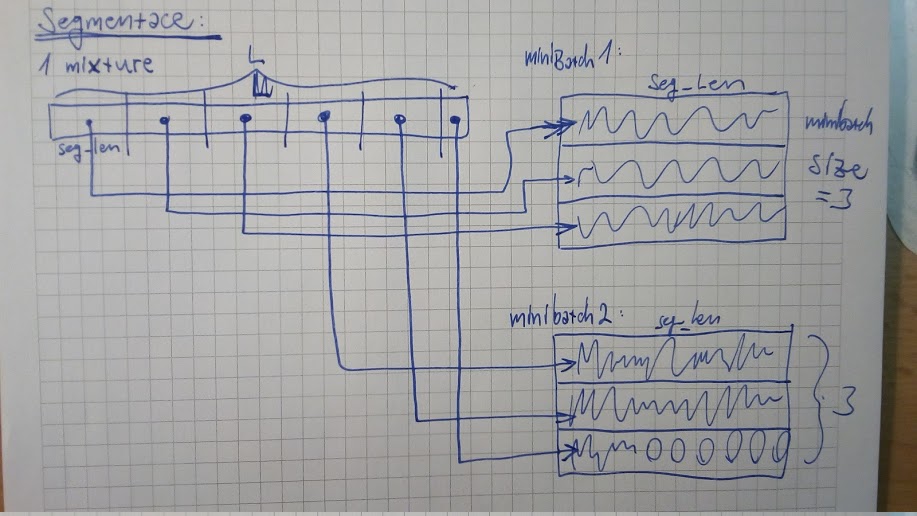 Segmentace:
1 mixture
L
seg-len
miniBatch 1:
seg_Len
minibatch
size
=3
minibatch 2:
seg_len
3
000000